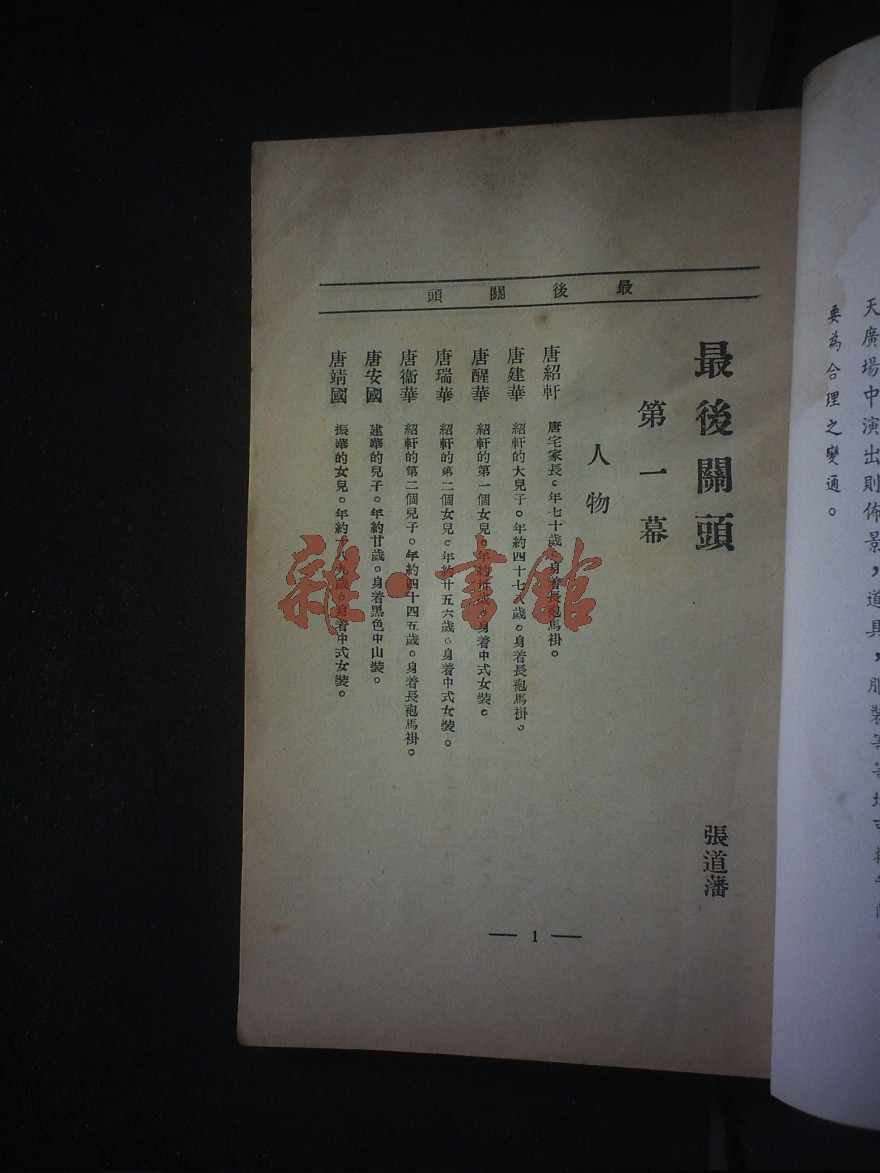 天廣場中演出則佈景，道具，服裝等等
要為合理之變通。
最後關頭
最後關頭
張道藩
第一幕
人物
唐紹軒 唐宅家長。年七十歲。身着長袍馬褂。
唐建華 紹軒的大兒子。年約四十七八歲。身着長袍馬褂。
唐醒華 紹軒的第一個女兒。年約卅歲。身着中式女裝。
唐瑞華 紹軒的第二個女兒。年約廿五六歲。身着中式女裝。
唐衞華 紹軒的第二個兒子。年約四十四五歲。身着長袍馬褂。
唐安國 建華的兒子。年約廿歲。身着黑色中山裝。
唐靖國 振華的女兒。年約十八九歲。身着中式女裝。
— 1 —
雜·書館